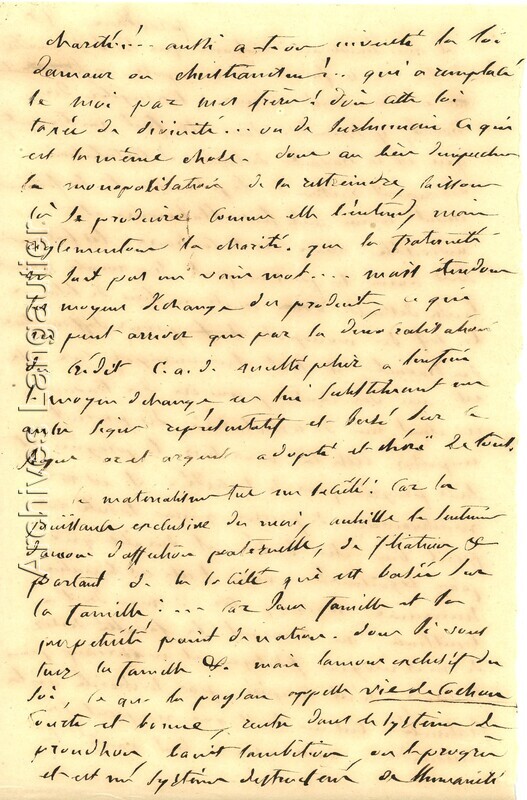 charité!... aussi a-t-on inventé la loi
d'amour ou christianisme!.. qui a remplacé
le moi par mes frères! d'où cette loi
taxée de divinité... ou de surhumain ce qui
est la même chose. donc au lieu d'empecher
la monopolisation de la restreindre, laissons
là se produire comme elle l'entend, mais
réglementons la charité. que la fraternité
ne soit pas un vain mot.... mais étendons
les moyens d'échange des produits, ce qui
ne peut arriver que par la généralisation
du crédit c.a.d. multiplier à l'infini
le moyen d'échange en lui substituant un
autre signe représentatif et basé sur le
signe or et argent adopté et de tout.
le materialisme tue une société! Car la
jouissance exclusive du moi, annihile le sentiment
d'affection paternelle, de filiation, &
partant de la société qui est basée sur
la famille!... Car sans famille et sa
perpétuité point de nation. donc si vous
tuez la famille &. mais l'amour exclusif du
soi, ce que le paysan appelle vie de Cochon
courte et bonne, rentre dans le système de
proudhon bannit l'ambition, ou le progrès
et est un système destructeur de l'humanité
Archives Langautier